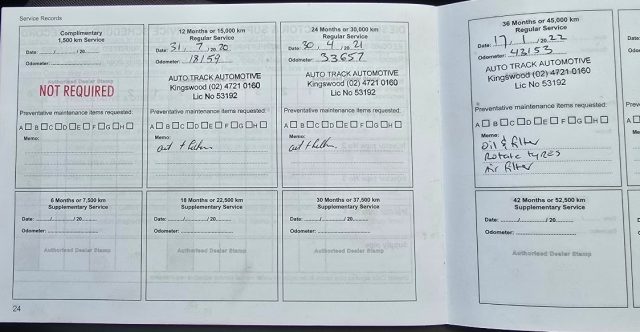 Service Records
Complimentary
1,500 km Service
Date: ....../....../ 20......
Odometer:
Authorised Dealer Stamp
NOT REQUIRED
Preventative maintenance items requested:
A B C D E F G H
Memo:
12 Months or 15,000 km
Regular Service
Date: 31 / 7 / 20 20
Odometer: 18159
AUTO TRACK AUTOMOTIVE
Kingswood (02) 4721 0160
Lic No 53192
Preventative maintenance items requested:
A B C D E F G H
Memo:
24 Months or 30,000 km
Regular Service
Date: 30 / 4 / 20 21
Odometer: 33657
AUTO TRACK AUTOMOTIVE
Kingswood (02) 4721 0160
Lic No 53192
Preventative maintenance items requested:
A B C D E F G H
Memo:
36 Months or 45,000 km
Regular Service
Date: 17 / 1 / 20 22
Odometer: 43153
AUTO TRACK AUTOMOTIVE
Kingswood (02) 4721 0160
Lic No 53192
Preventative maintenance items requested:
A B C D E F G H
Memo:
Oil & filter
Rotate tyres
Air filter
6 Months or 7,500 km
Supplementary Service
Date: ....../....../ 20......
Odometer:
Authorised Dealer Stamp
18 Months or 22,500 km
Supplementary Service
Date: ....../....../ 20......
Odometer:
Authorised Dealer Stamp
30 Months or 37,500 km
Supplementary Service
Date: ....../....../ 20......
Odometer:
Authorised Dealer Stamp
42 Months or 52,500 km
Supplementary Service
Date: ....../....../ 20......
Odometer:
Authorised Dealer Stamp
24